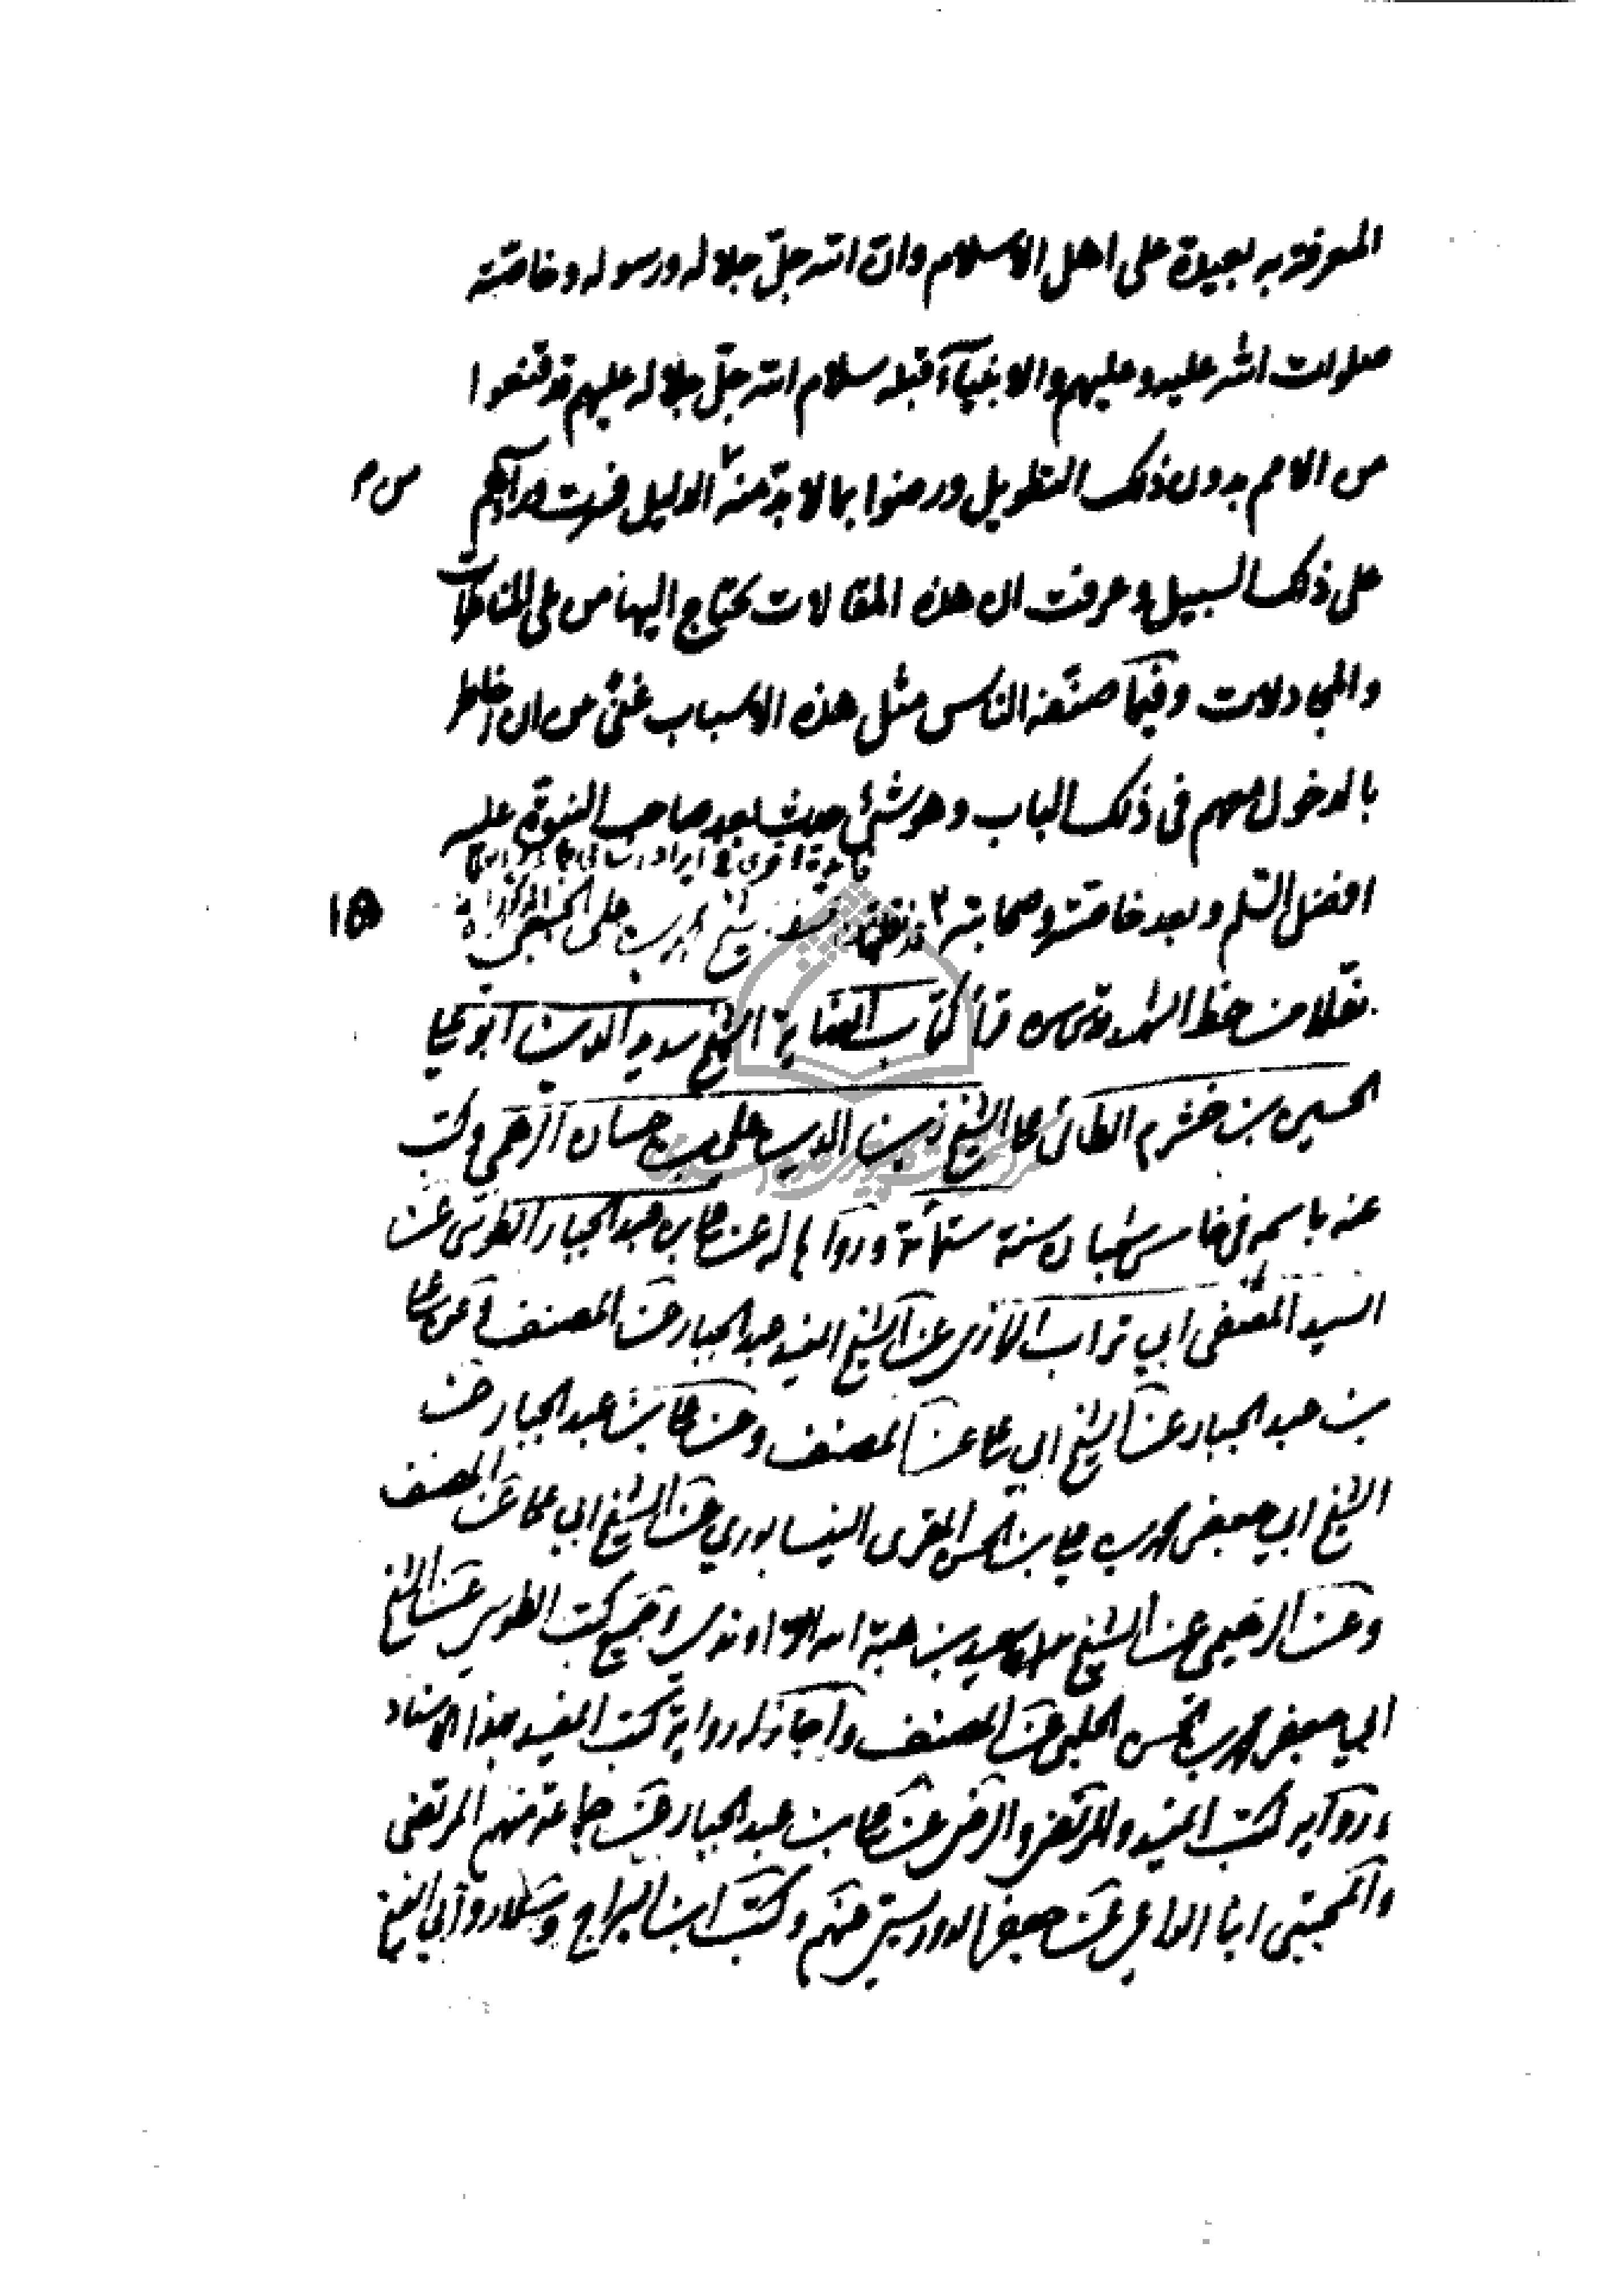 المعرفة به بعيدة على اهل الاسلام وان الله جلّ جلاله ورسوله وخاصته
صلوات الله عليه وعليهم والانبيآء قبله سلام الله جلّ جلاله عليهم قد قنعوا
من الامم بدون ذلك التطويل ورضوا بما لا بدّ منه الدليل فسرت ورآهم
على ذلك السبيل وعرفت ان هذه المقالات يحتاج اليها من يلي المناظرات
والمجادلات وفيما صنّفه الناس مثل هذه الاسباب غنى من ان اخاطر
بالدخول معهم في ذلك الباب وهو شئ حدث بعد صاحب النبوّة عليه
افضل السلم وبعد خاصته وصحابته
١٥
نقلا من خط الشهيد قدس سره قرأ كتاب النهاية الشيخ سديد الدين ابو علي
الحسين بن خشرم الطائي على الشيخ زين الدين علي بن حسان الرهمي وكتب
عنه باسمه في خامس شعبان سنة ستمائة ورواها له عن علي بن عبد الجبار الطوسي عن
السيد المصفى ابي تراب الرازي عن الشيخ المفيد عبد الجبار عن المصنف وعن علي
بن عبد الجبار عن الشيخ ابي علي عن المصنف وعن علي بن عبد الجبار عن
الشيخ ابي جعفر محمد بن علي بن الحسن المقرى النيسابوري عن الشيخ ابي علي عن المصنف
وعن الرهيمي عن الشيخ سعيد بن هبة الله الراوندي وجميع كتب الطوسي عن الشيخ
ابي جعفر محمد بن الحسن الحلبي عن المصنف واجاز له رواية كتب المفيد بهذا الاسناد
ورواية كتب المفيد والمرتضى والرضي عن علي بن عبد الجبار عن جماعة منهم المرتضى
والمجتبى ابنا الداعي عن جعفر الدوريستي عنهم وكتب ابن البراج وسلار وابي الفتح